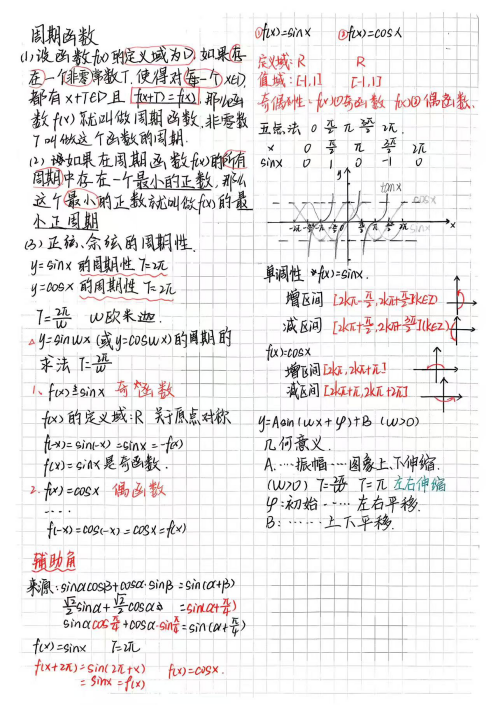 周期函数
(1) 设函数f(x)的定义域为D, 如果存
在一个非零常数T, 使得对每一个x∈D,
都有x+T∈D且 f(x+T)=f(x), 那么函
数f(x)就叫做周期函数,非零数
T叫做这个函数的周期.
(2) 如果在周期函数f(x)的所有
周期中存在一个最小的正数,那么
这个最小的正数就叫做f(x)的最
小正周期
(3) 正弦、余弦的周期性.
y=sinx 的周期性 T=2π
y=cosx 的周期性 T=2π
T=2π/w w欧米迦.
△ y=sinwx (或y=coswx)的周期的
求法 T=2π/w
1、f(x)=sinx 奇函数
f(x)的定义域:R 关于原点对称
f(-x)=sin(-x)=-sinx=-f(x)
f(x)=sinx是奇函数.
2. f(x)=cosx 偶函数
····
f(-x)=cos(-x)=cosx=f(x)
辅助角
来源:sinαcosβ+cosα·sinβ=sin(α+β)
√2/2 sinα+√2/2 cosα =sin(α+π/4)
sinαcosπ/4+cosα·sinπ/4=sin(α+π/4)
f(x)=sinx T=2π
f(x+2π)=sin(2π+x) f(x)=cosx.
=sinx=f(x)
①f(x)=sinx ②f(x)=cosx
定义域:R R
值域:[-1,1] [-1,1]
奇偶性:f(x)①奇函数 f(x)②偶函数.
五点法 0 π/2 π 3π/2 2π.
x 0 π/2 π 3π/2 2π
sinx 0 1 0 -1 0
y
tanx
cosx
sinx
x
单调性 f(x)=sinx.
增区间 [2kπ-π/2, 2kπ+π/2](k∈Z)
减区间 [2kπ+π/2, 2kπ+3π/2](k∈Z)
f(x)=cosx
增区间[2kπ, 2kπ+π]
减区间[2kπ+π, 2kπ+2π]
y=Asin(wx+φ)+B (w>0)
几何意义.
A. ···振幅···图象上、下伸缩.
(w>0) T=2π/w T=π 左右伸缩
φ:初始····左右平移.
B: ······上下平移.